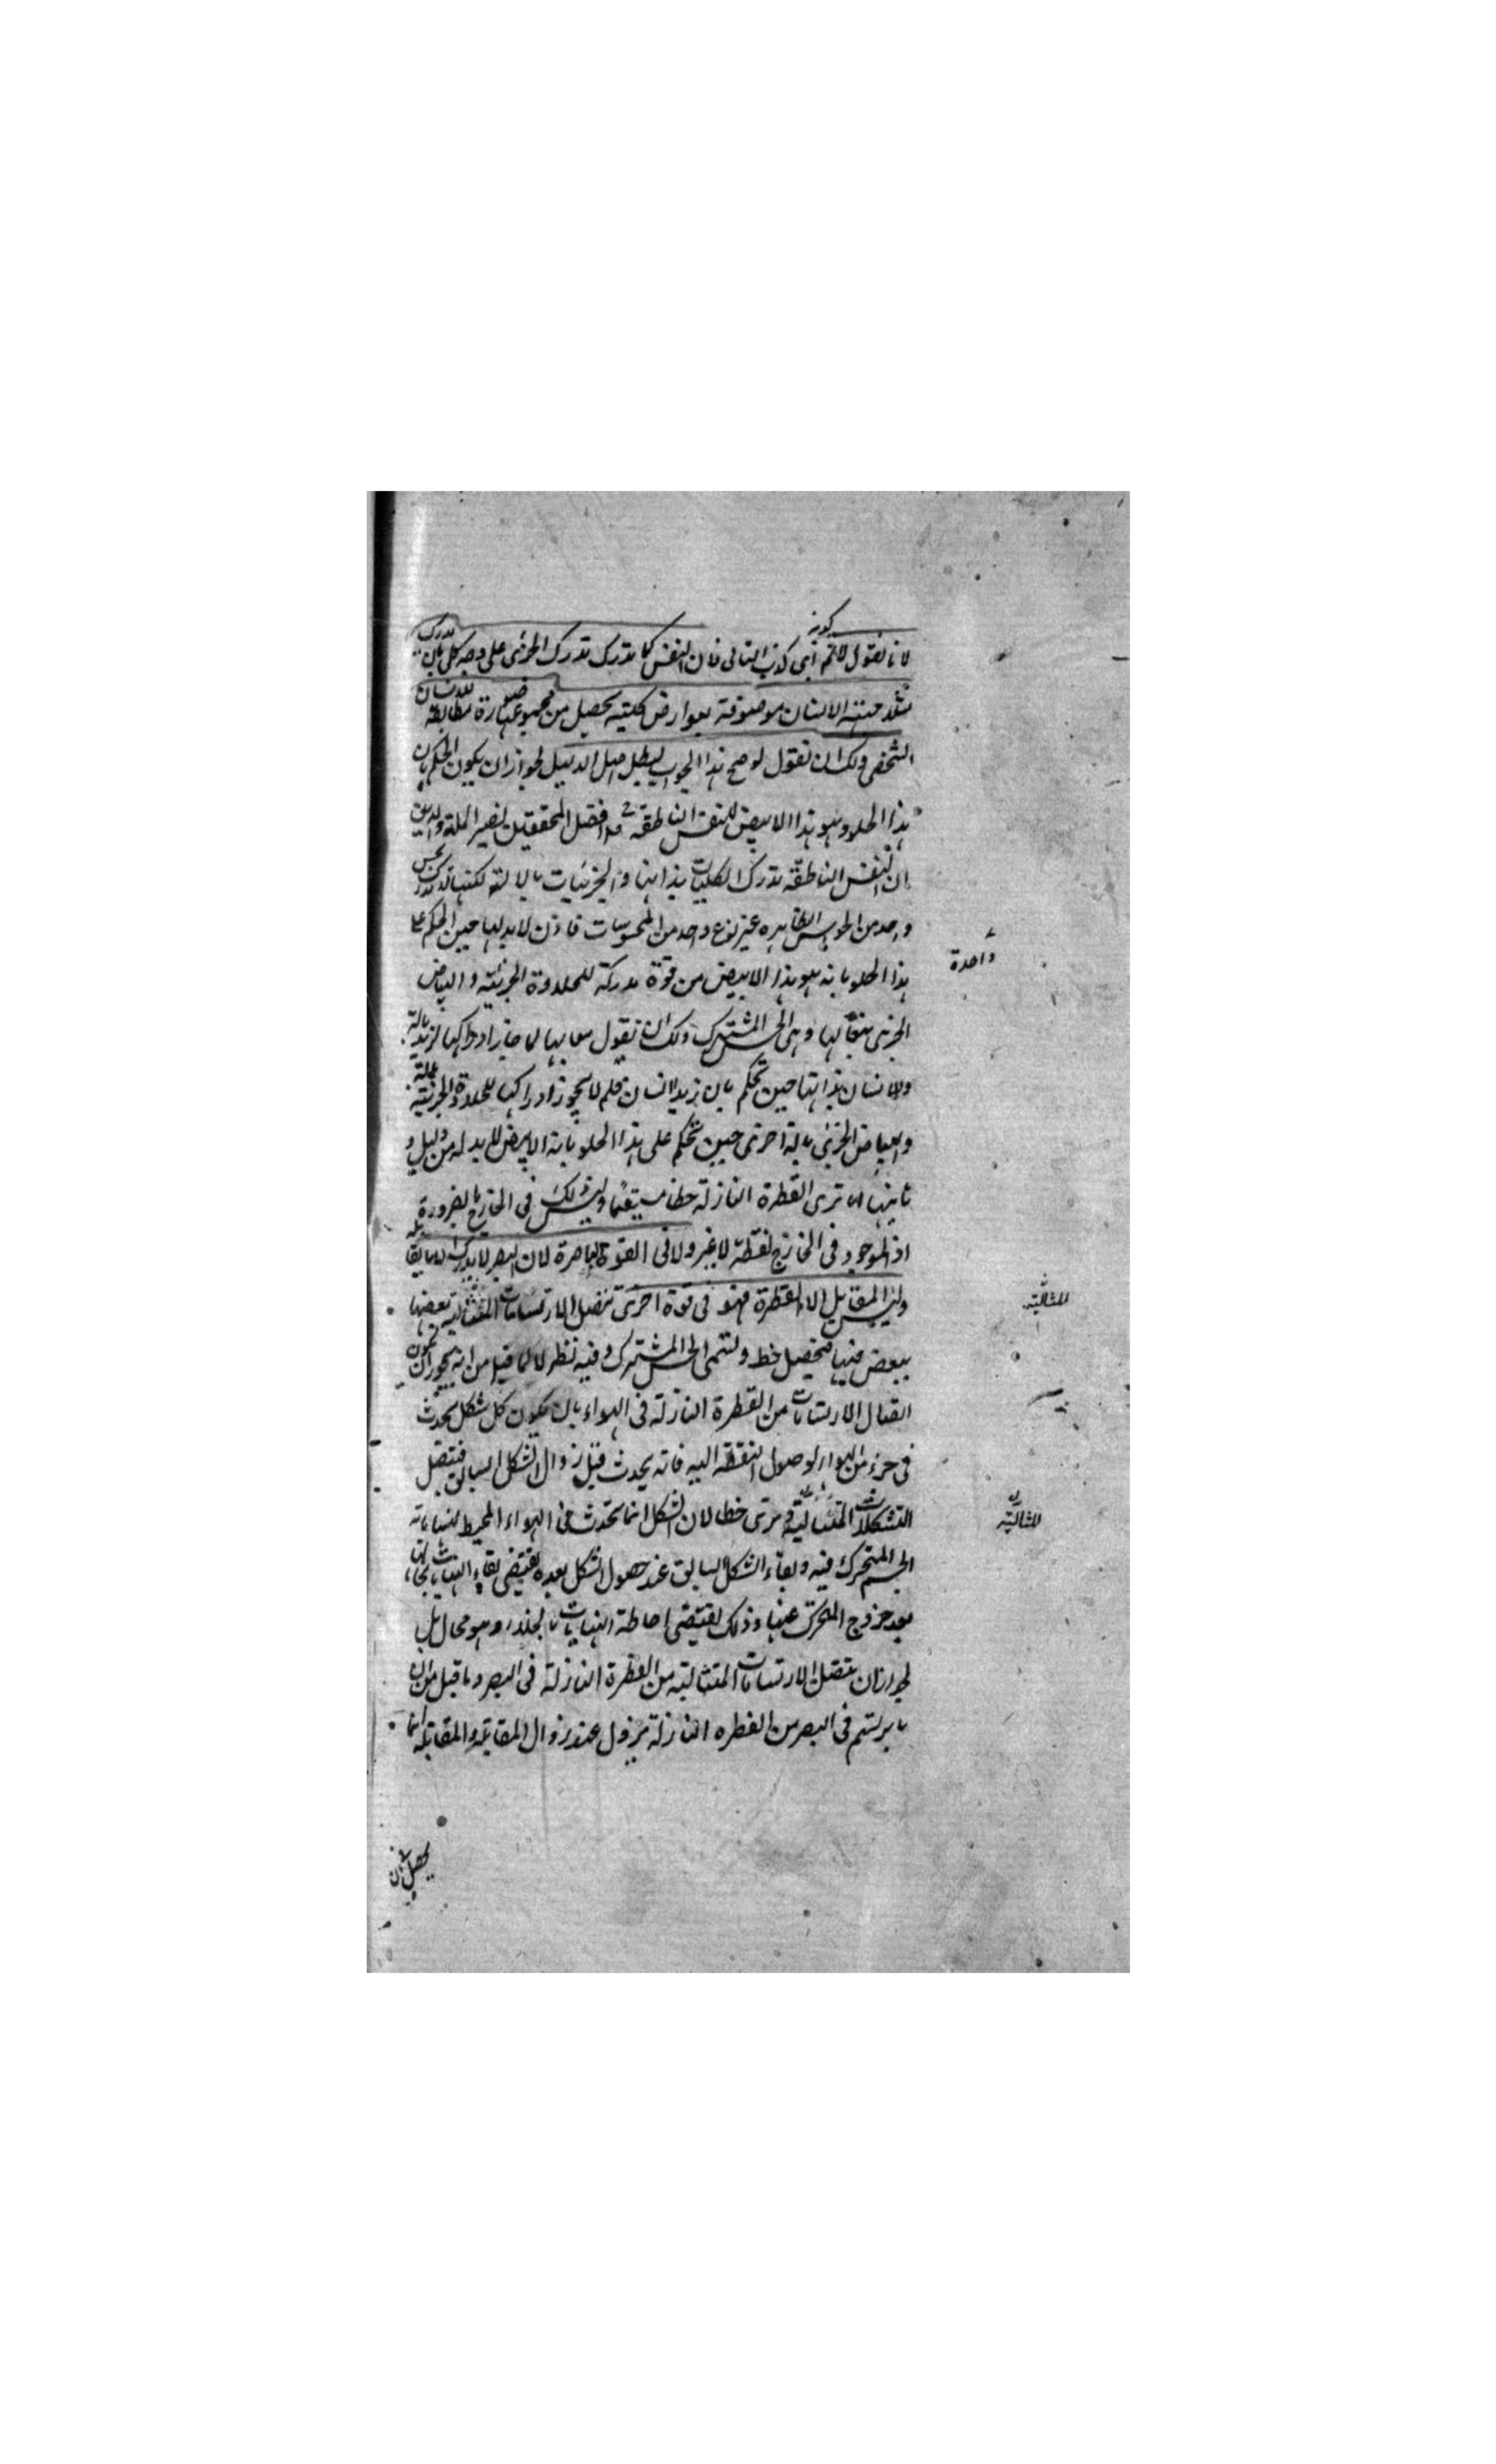 لانا نقول لانم أي كذب التالي فان النفس كما تدرك تدرك الجزئي على وجه كلي بان يدرك
كونه
مثلا حقيقة الانسان موصوفة بعوارض كلية يحصل من مجموعها صورة مطابقة للانسان
الشخصي ولك ان تقول لو صح هذا الجواب ليبطل اصل الدليل لجواز ان يكون الحكم بان
هذا الحلو هو هذا الابيض للنفس الناطقة افضل المحققين نصير الملة والدين
ان النفس الناطقة تدرك الكليات بذاتها والجزئيات بالالة لكنها لا تدرك بحس
واحد من الحواس الظاهره غير نوع واحد من المحسوسات فاذن لا بد لها حين الحكم على
واحدة
هذا الحلو بانه هو هذا الابيض من قوة مدركة للحلاوة الجزئية والبياض
الجزئي متقابلها وهي الحس المشترك ولك ان تقول لما جاز ادراكها لزيد بالة
ولانسان بذاتها حين تحكم بان زيدا انسان فلم لا يجوز ادراكها للحلاوة الجزئية بالة
والبياض الجزئي بالة اخرى حين تحكم على هذا الحلو بانه الابيض لا بد له من دليل و
ثانيها انا نرى القطرة النازلة خطا مستقيما وليس ذلك في الخارج بالضرورة
اذ الموجود في الخارج نقطة لا غير ولا في القوة الباصرة لان البصر لا يدرك الا ما يقابله
وليس المقابل الا القطرة فهو في قوة اخرى تتصل الارتسامات المتتالية بعضها
للتتالية
ببعض فيها فيحصل خط وتسمى الحس المشترك وفيه نظر لا لما قيل من انه يجوز ان يكون
اتصال الارتسامات من القطرة النازلة في الهواء بان يكون كل شكل يحدث
في جزء من الهواء لوصول النقطة اليه فانه يحدث قبل زوال الشكل السابق فتتصل
التشكلات المتتالية وترى خطا لان الشكل انما تحدث في الهواء المحيط لنهاياته
الجسم المتحرك فيه وبقاء الشكل السابق عند حصول الشكل بعده يقتضي بقاء النهايات بحالها
بعد خروج المتحرك عنها وذلك يقتضي احاطة النهايات بالخلاء وهو محال بل
لجواز ان يتصل الارتسامات المتتالية من القطرة النازلة في البصر وما قيل من ان
ما يرتسم في البصر من القطره النازلة يزول عند زوال المقابلة والمقابلة انما